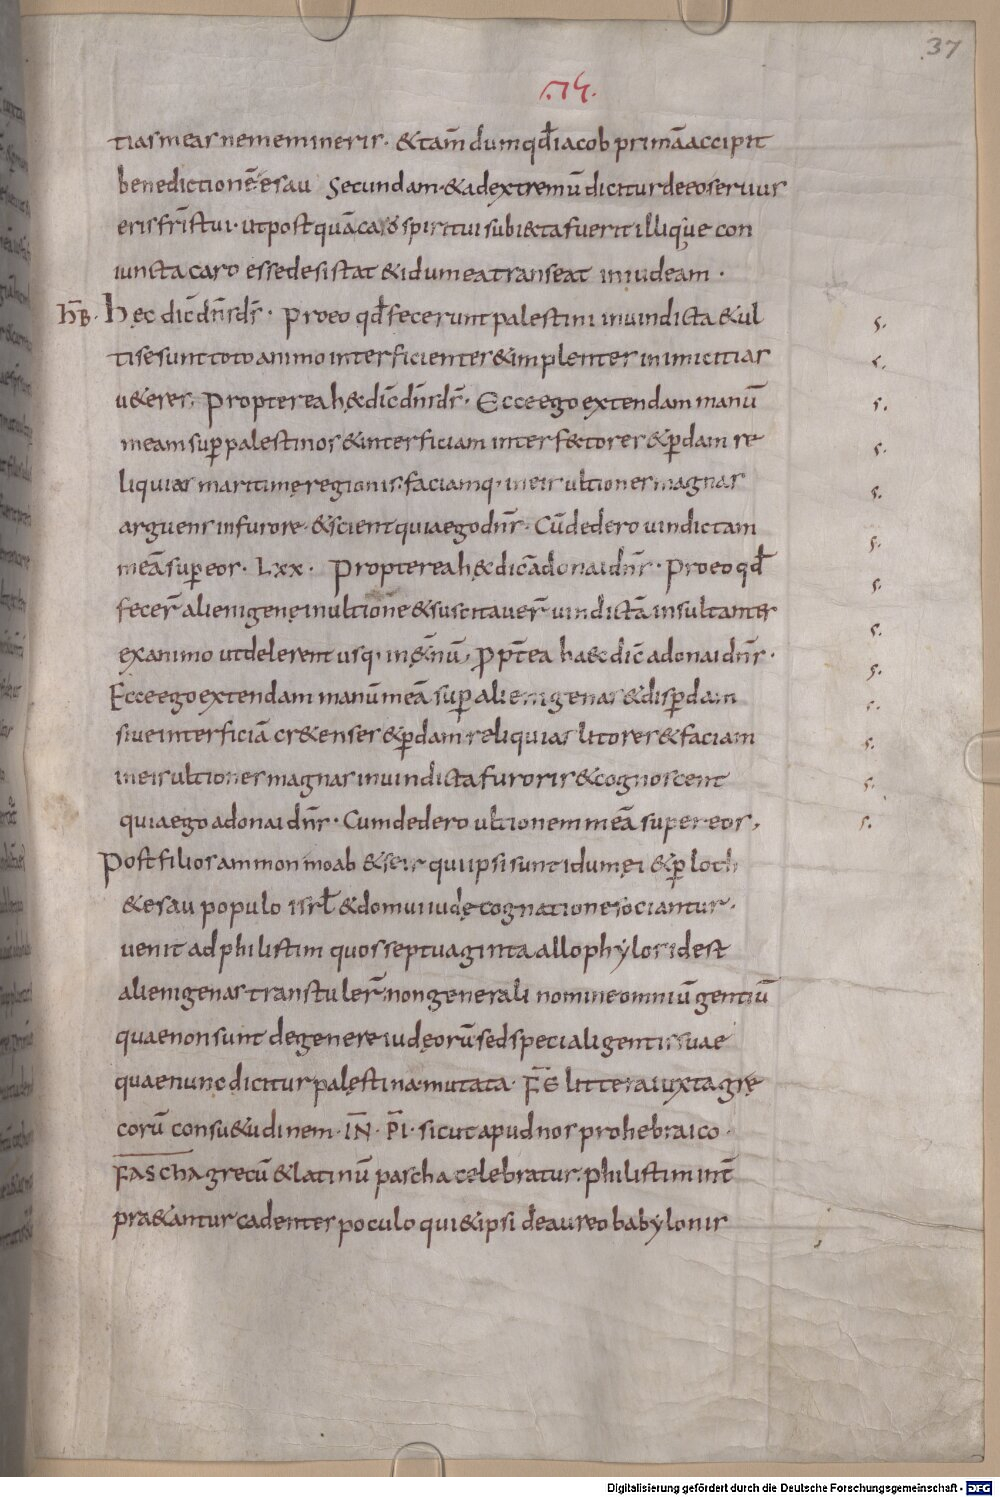 37
tias meas ne memineris· &tam̄ dum qđ iacob primā accipit
benedictionē· esau secundam· & ad extremū dicitur de eo seruus
eris fr̄is tui· ut postquā caro spiritui subiecta fuerit illique con
iuncta caro esse desistat & idumea transeat in iudeam·
hB· hęc dic̄ dn̄s ds̄· Pro eo qđ fecerunt palestini in uindicta & ul
ti se sunt toto animo interficientes & implentes inimicitias
u&eres; Propterea hęc dic̄ dn̄s ds̄· Ecce ego extendam manū
meam sup palestinos & interficiam interfectores & pdam re
liquias maritimę regionis· faciamq· in eis ultiones magnas
arguens in furore· & scient quia ego dn̄s· Cū dedero uindictam
meā super eos· Lxx· Propterea hęc dic̄ adonai dn̄s· Pro eo qđ
fecer̄ alienigenę in ultione & suscitauer̄ uindictā insultantes
ex animo ut delerent usq· in &n̄ū· ppt̄ea haec dic̄ adonai dn̄s·
Ecce ego extendam manū meā sup alienigenas & dispdam
siue interficiā cr&enses & pdam reliquias litores & faciam
in eis ultiones magnas in uindicta furoris & cognoscent
quia ego adonai dn̄s· Cum dedero ultionem meā super eos·
Post filios ammon moab & seir qui ipsi sunt idumęi & p loth
& esau populo isrł & domui iudę cognatione sociantur·
uenit ad philistim quos septuaginta allophylos id est
alienigenas transtuler̄· non generali nomine omniū gentiū
quae non sunt de genere iudęorū sed speciali gentis suae
quae nunc dicitur palęstina· mutata· FE littera iuxta grę
corū consu&udinem· IN· PI· sicut apud nos pro hebraico·
FASCHA grecū & latinū pascha celebratur· philistim int̄
pra&antur cadentes poculo qui & ipsi de aureo babylonis
s.
s.
s.
s.
s.
s.
s.
s.
s.
s.
s.
s.
s.
Digitalisierung gefördert durch die Deutsche Forschungsgemeinschaft - DFG